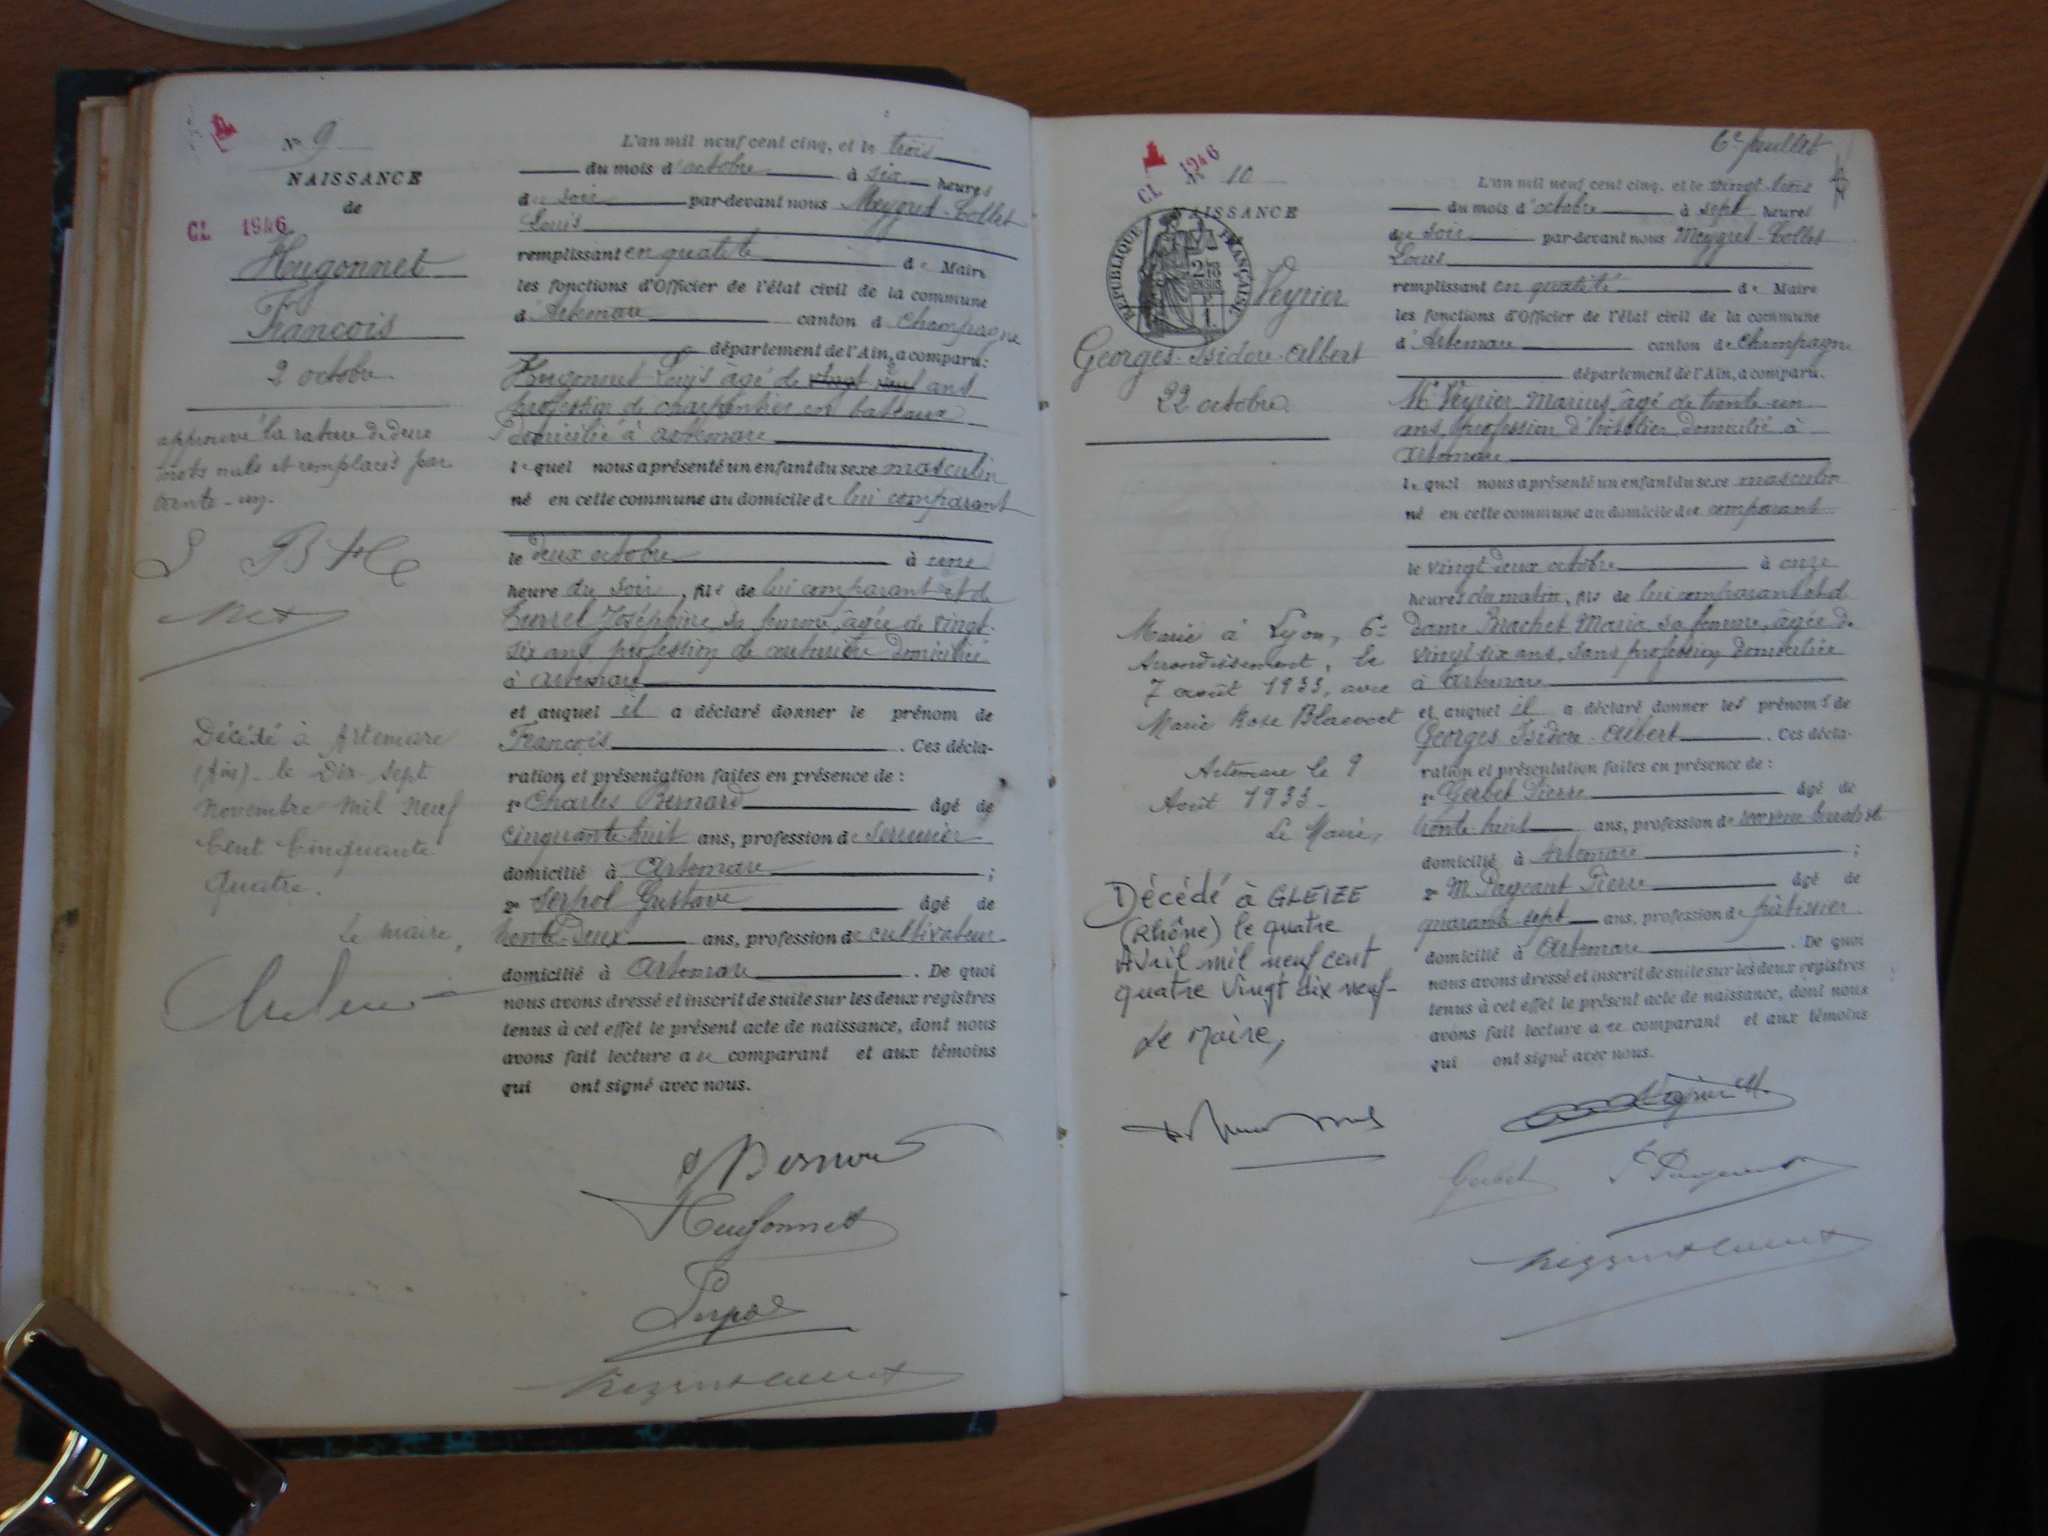 N° 9
NAISSANCE
de
CL 1946
Hugonnet
François
2 octobre
approuvé la rature de deux
mots nuls et remplacés par
trente-un.
Décédé à Artemare
(Ain) le Dix sept
novembre mil neuf
Cent Cinquante
Quatre.
Le maire,
L'an mil neuf cent cinq, et le trois
du mois d'octobre à six heures
du soir par-devant nous Meygret-Collet
Louis
remplissant en qualité de Maire
les fonctions d'Officier de l'état civil de la commune
d'Artemare canton d Champagne
département de l'Ain, a comparu:
Hugonnet Louis âgé de vingt neuf ans
profession de charpentier en bateaux
Domicilié à artemare
lequel nous a présenté un enfant du sexe masculin
né en cette commune au domicile de lui comparant
le deux octobre à une
heure du soir, fils de lui comparant et de
Joséphine sa femme, âgée de vingt-
six ans profession de couturière domiciliée
à artemare
et auquel il a déclaré donner le prénom de
François. Ces décla-
ration et présentation faites en présence de :
1° Charles Bernard âgé de
cinquante-huit ans, profession de serrurier
domicilié à Artemare ;
2° Serpol Gustave âgé de
trente-deux ans, profession de cultivateur
domicilié à Artemare. De quoi
nous avons dressé et inscrit de suite sur les deux registres
tenus à cet effet le présent acte de naissance, dont nous
avons fait lecture au comparant et aux témoins
qui ont signé avec nous.
Bernard
Hugonnet
Serpol
6e feuillet
CL 1946
N° 10
NAISSANCE
RÉPUBLIQUE FRANÇAISE
Veyrier
Georges-Isidore-Albert
22 octobre
Marié à Lyon, 6e
Arrondissement, le
7 août 1933, avec
Marie Rose
Artemare le 9
Août 1933.
Le Maire,
Décédé à GLEIZE
(Rhône) le quatre
Avril mil neuf cent
quatre vingt dix neuf-
Le Maire,
L'an mil neuf cent cinq, et le vingt trois
du mois d'octobre à sept heures
du soir par-devant nous Meygret-Collet
Louis
remplissant en qualité de Maire
les fonctions d'Officier de l'état civil de la commune
d'Artemare canton de Champagne
département de l'Ain, a comparu.
Mr Veyrier Marius âgé de trente-un
ans, profession d'hôtelier domicilié à
Artemare
lequel nous a présenté un enfant du sexe masculin
né en cette commune au domicile du comparant
le vingt deux octobre à onze
heures du matin, fils de lui comparant et de
dame Brachet Maria sa femme, âgée de
vingt six ans, sans profession domiciliée
à Artemare
et auquel il a déclaré donner les prénoms de
Georges Isidore-Albert. Ces décla-
ration et présentation faites en présence de :
1° Gerbet Pierre âgé de
trente-huit ans, profession de
domicilié à Artemare ;
2° M. Paycant Pierre âgé de
quarante-sept ans, profession de pâtissier
domicilié à Artemare. De quoi
nous avons dressé et inscrit de suite sur les deux registres
tenus à cet effet le présent acte de naissance, dont nous
avons fait lecture au comparant et aux témoins
qui ont signé avec nous.
Veyrier M.
Gerbet